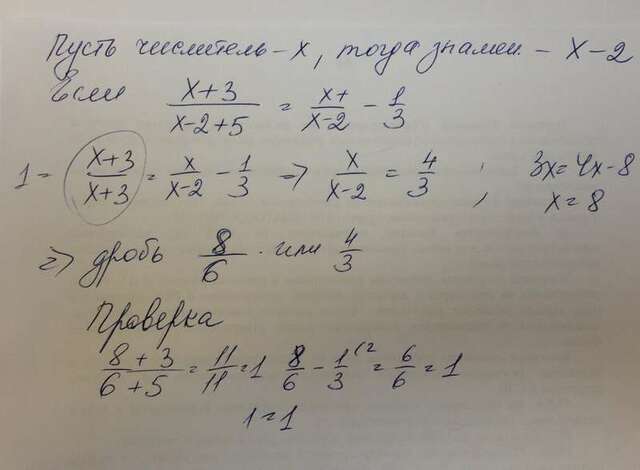 Пусть числитель - x, тогда знамен. - x-2
Если (x+3)/(x-2+5) = x+/(x-2) - 1/3
1 = (x+3)/(x+3) = x/(x-2) - 1/3 => x/(x-2) = 4/3 ; 3x=4x-8
, x=8
=> дробь 8/6 . или 4/3
Проверка
(8+3)/(6+5) = 11/11 = 1 8/6 - 1/3 (2 = 6/6 = 1
1=1